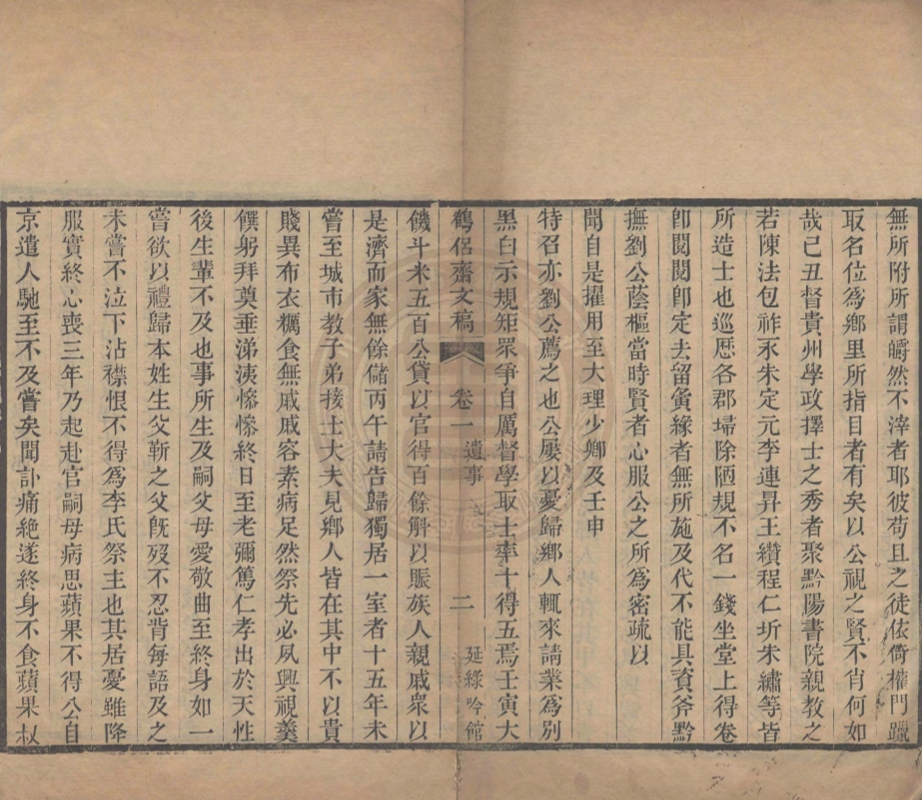 無所附所謂皭然不滓者耶彼苟且之徒依倚權門躐
取名位爲鄉里所指目者有矣以公視之賢不肖何如
哉己丑督貴州學政擇士之秀者聚黔陽書院親教之
若陳法包祚永朱定元李連昇王纘程仁圻朱繡等皆
所造士也巡歷各郡埽除陋規不名一錢坐堂上得卷
卽閱閱卽定去留夤緣者無所施及代不能具資斧黔
撫劉公蔭樞當時賢者心服公之所爲密疏以
聞自是擢用至大理少卿及壬申
特召亦劉公薦之也公屢以憂歸鄉人輒來請業爲別
黑白示規矩眾爭自厲督學取士率十得五焉壬寅大
鶴侶齋文稿 卷一 遺事 二 延綠吟館
饑斗米五百公貸以官得百餘斛以賑族人親戚眾以
是濟而家無餘儲丙午請告歸獨居一室者十五年未
嘗至城市教子弟接士大夫見鄉人皆在其中不以貴
賤異布衣糲食無戚戚容素病足然祭先必夙興視羹
饌躬拜奠垂涕洟慘慘終日至老彌篤仁孝出於天性
後生輩不及也事所生及嗣父母愛敬曲至終身如一
嘗欲以禮歸本姓生父靳之父旣歿不忍背每語及之
未嘗不泣下沾襟恨不得爲李氏祭主也其居憂雖降
服實終心喪三年乃起赴官嗣母病思蘋果不得公自
京遣人馳至不及嘗矣聞訃痛絕遂終身不食蘋果叔